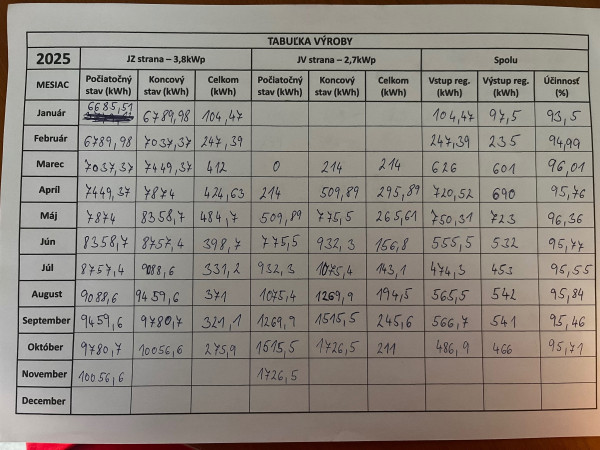 TABUĽKA VÝROBY
2025 JZ strana – 3,8kWp JV strana – 2,7kWp Spolu
MESIAC Počiatočný stav (kWh) Koncový stav (kWh) Celkom (kWh) Počiatočný stav (kWh) Koncový stav (kWh) Celkom (kWh) Vstup reg. (kWh) Výstup reg. (kWh) Účinnosť (%)
Január 6685,51 6789,98 104,47 104,47 97,5 93,5
Február 6789,98 7037,37 247,39 247,39 235 94,99
Marec 7037,37 7449,37 412 0 214 214 626 601 96,01
Apríl 7449,37 7874 424,63 214 509,89 295,89 720,52 690 95,76
Máj 7874 8358,7 484,7 509,89 775,5 265,61 750,31 723 96,36
Jún 8358,7 8757,4 398,7 775,5 932,3 156,8 555,5 532 95,77
Júl 8757,4 9088,6 331,2 932,3 1075,4 143,1 474,3 453 95,55
August 9088,6 9459,6 371 1075,4 1269,9 194,5 565,5 542 95,84
September 9459,6 9780,7 321,1 1269,9 1515,5 245,6 566,7 541 95,46
Október 9780,7 10056,6 275,9 1515,5 1726,5 211 486,9 466 95,71
November 10056,6 1726,5
December